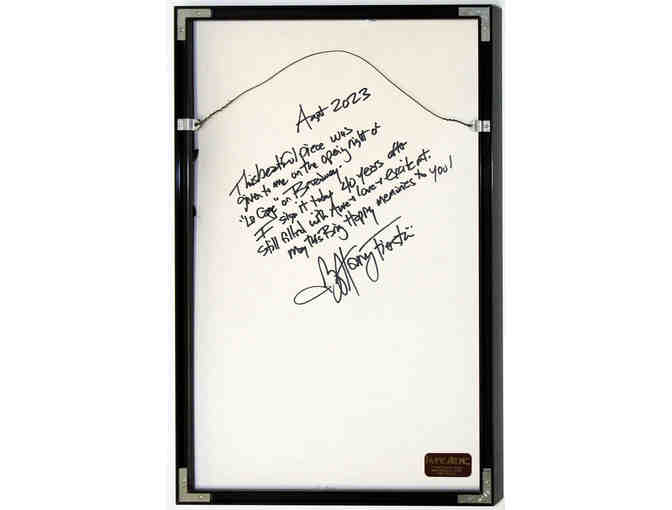 August 2023
This beautiful piece was
given to me on the opening night of
"La Cage" on Broadway.
I sign it today 40 years after
still filled with Awe + Love + excitement.
May this Bring Happy memories to you!
Harvey Fierstein